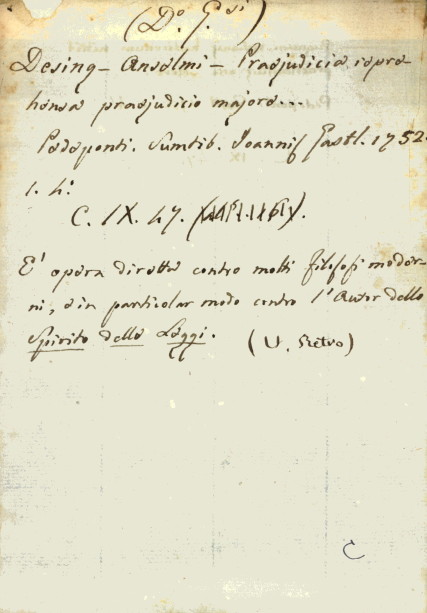 (D.º G.si)
Desing - Anselmi - Praejudicia repre
hensa praejudicio majore...
Pedeponti. Sumtib. Joannis Gastl. 1752.
1. 4.º
C. IX. 47.
E' opera diretta contro molti filosofi moder-
ni, e in particolar modo contro l'Autor dello
Spirito delle Leggi. (V. Retro)
C